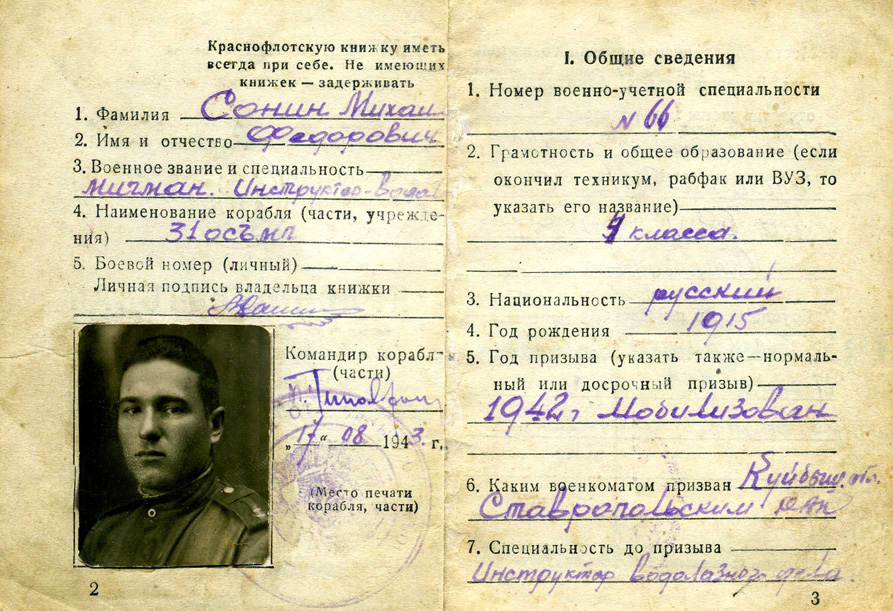 Краснофлотскую книжку иметь
всегда при себе. Не имеющих
книжек — задерживать
1. Фамилия Сонин Михаил
2. Имя и отчество Федорович
3. Военное звание и специальность
мичман. Инструктор-водол
4. Наименование корабля (части, учрежде-
ния) 31осъмп
5. Боевой номер (личный)
Личная подпись владельца книжки
Командир корабл
(части)
„17“ 08 1943. г.
(Место печати
корабля, части)
2
I. Общие сведения
1. Номер военно-учетной специальности
N 66
2. Грамотность и общее образование (если
окончил техникум, рабфак или ВУЗ, то
указать его название)
4 класса.
3. Национальность русский
4. Год рождения 1915
5. Год призыва (указать также—нормаль-
ный или досрочный призыв)
1942г Мобилизован
6. Каким военкоматом призван Куйбыш обл.
Ставропольским
7. Специальность до призыва
Инструктор водолазного дела.
3